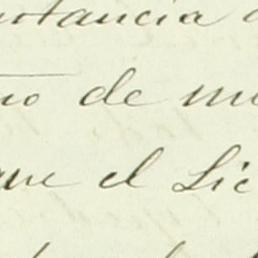 ortancia
no de m
que el Lic